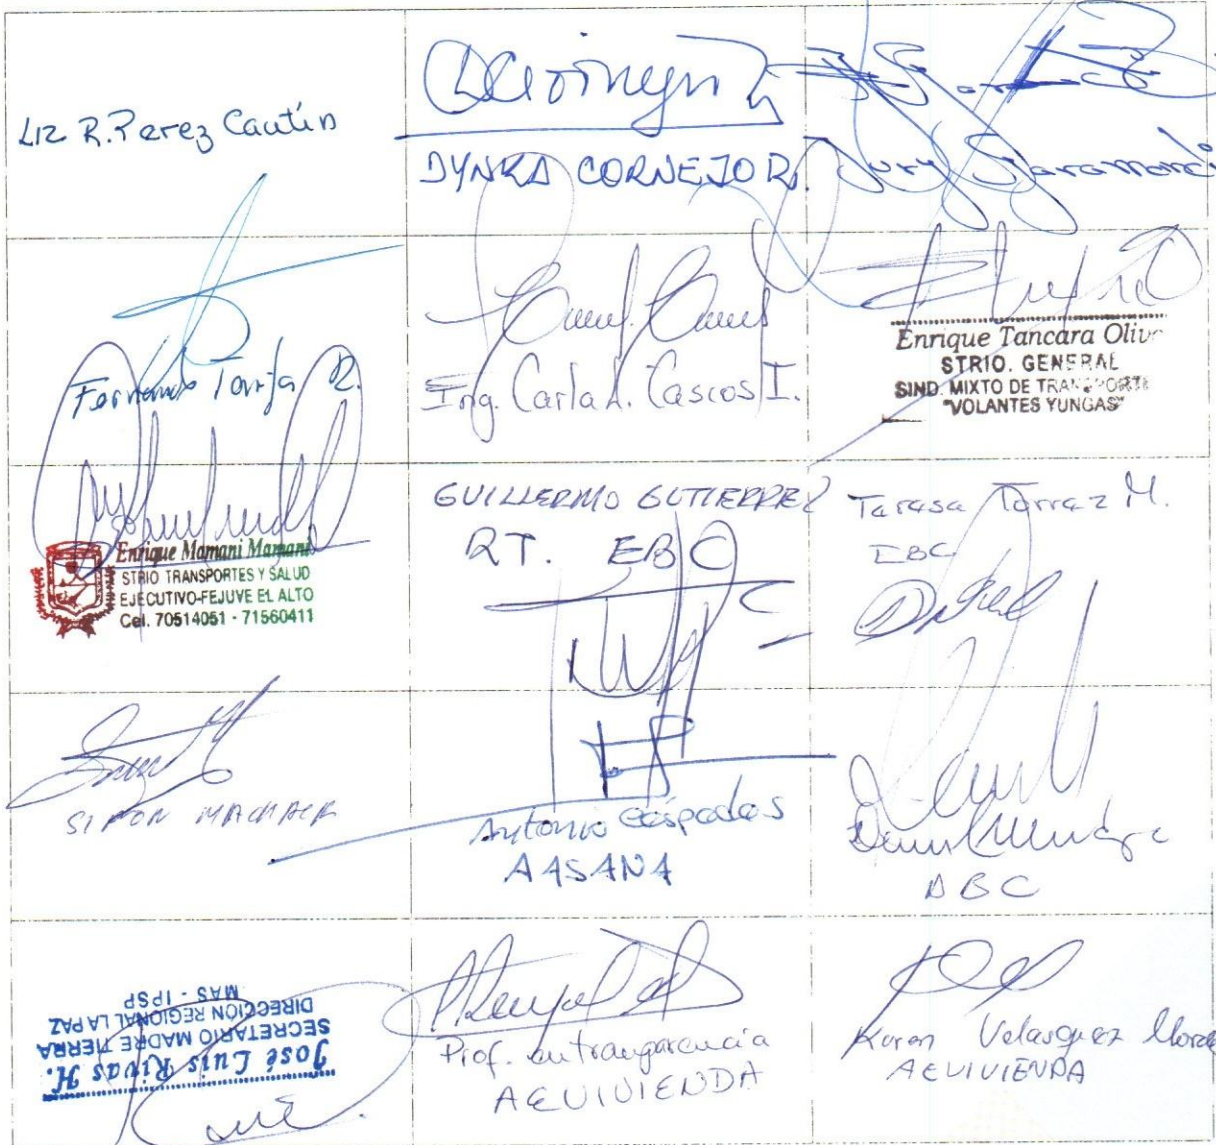 Liz R. Perez Cautin
DYNKA CORNEJO R.
Jury
Fernando Tarifa R.
Ing. Carla A. Cascos I.
Enrique Tancara Oliv
STRIO. GENERAL
SIND. MIXTO DE TRANSPORTE
"VOLANTES YUNGAS"
Enrique Mamani Mamani
STRIO TRANSPORTES Y SALUD
EJECUTIVO-FEJUVE EL ALTO
Cel. 70514051 - 71560411
GUILLERMO GUTIERREZ
RT. EBC
Teresa Torrez M.
EBC
SIMON
Antonio Céspedes
AASANA
ABC
José Luis Rivas H.
SECRETARIO MADRE TIERRA
DIRECCION REGIONAL LA PAZ
MAS - IPSP
Prof. en transparencia
AEVIVIENDA
Karen Velasquez
AEVIVIENDA